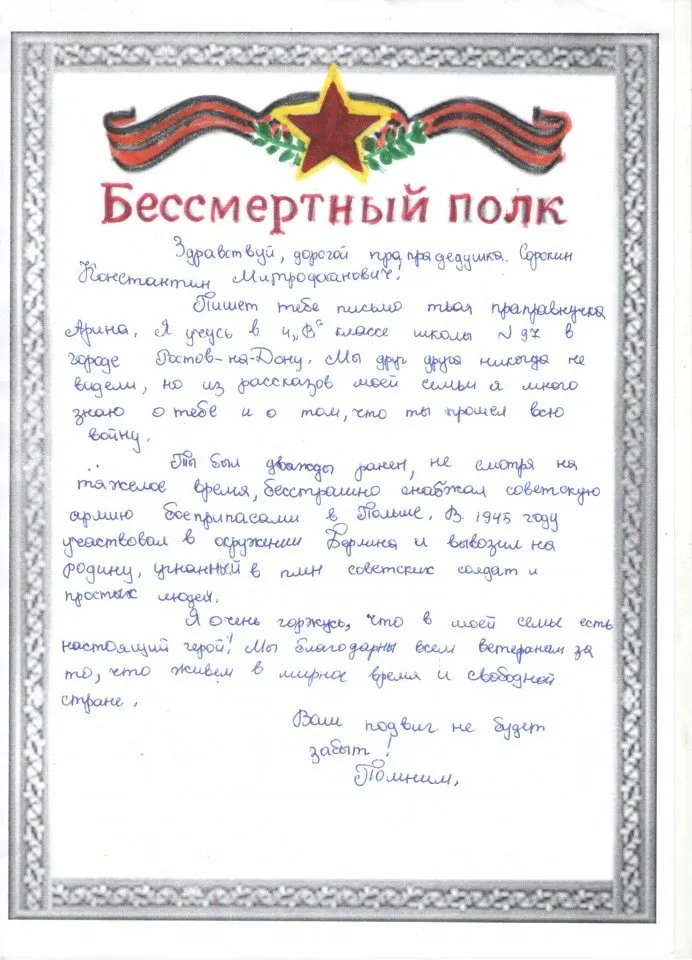 Бессмертный полк
Здравствуй, дорогой прапрадедушка. Сорокин
Константин Митродоганович!
Пишет тебе письмо твоя праправнучка
Арина. Я учусь в 4„В“ классе школы N 97 в
городе Ростов-на-Дону. Мы друг друга никогда не
видели, но из рассказов моей семьи я много
знаю о тебе и о том, что ты прошел всю
войну.
Ты был дважды ранен, не смотря на
тяжелое время, бесстрашно снабжал советскую
армию боеприпасами в Польше. В 1945 году
участвовал в окружении Берлина и вывозил на
родину, угнанный в плен советских солдат и
простых людей.
Я очень горжусь, что в моей семье есть
настоящий герой! Мы благодарны всем ветеранам за
то, что живем в мирное время и свободной
стране.
Ваш подвиг не будет
забыт!
Помним.